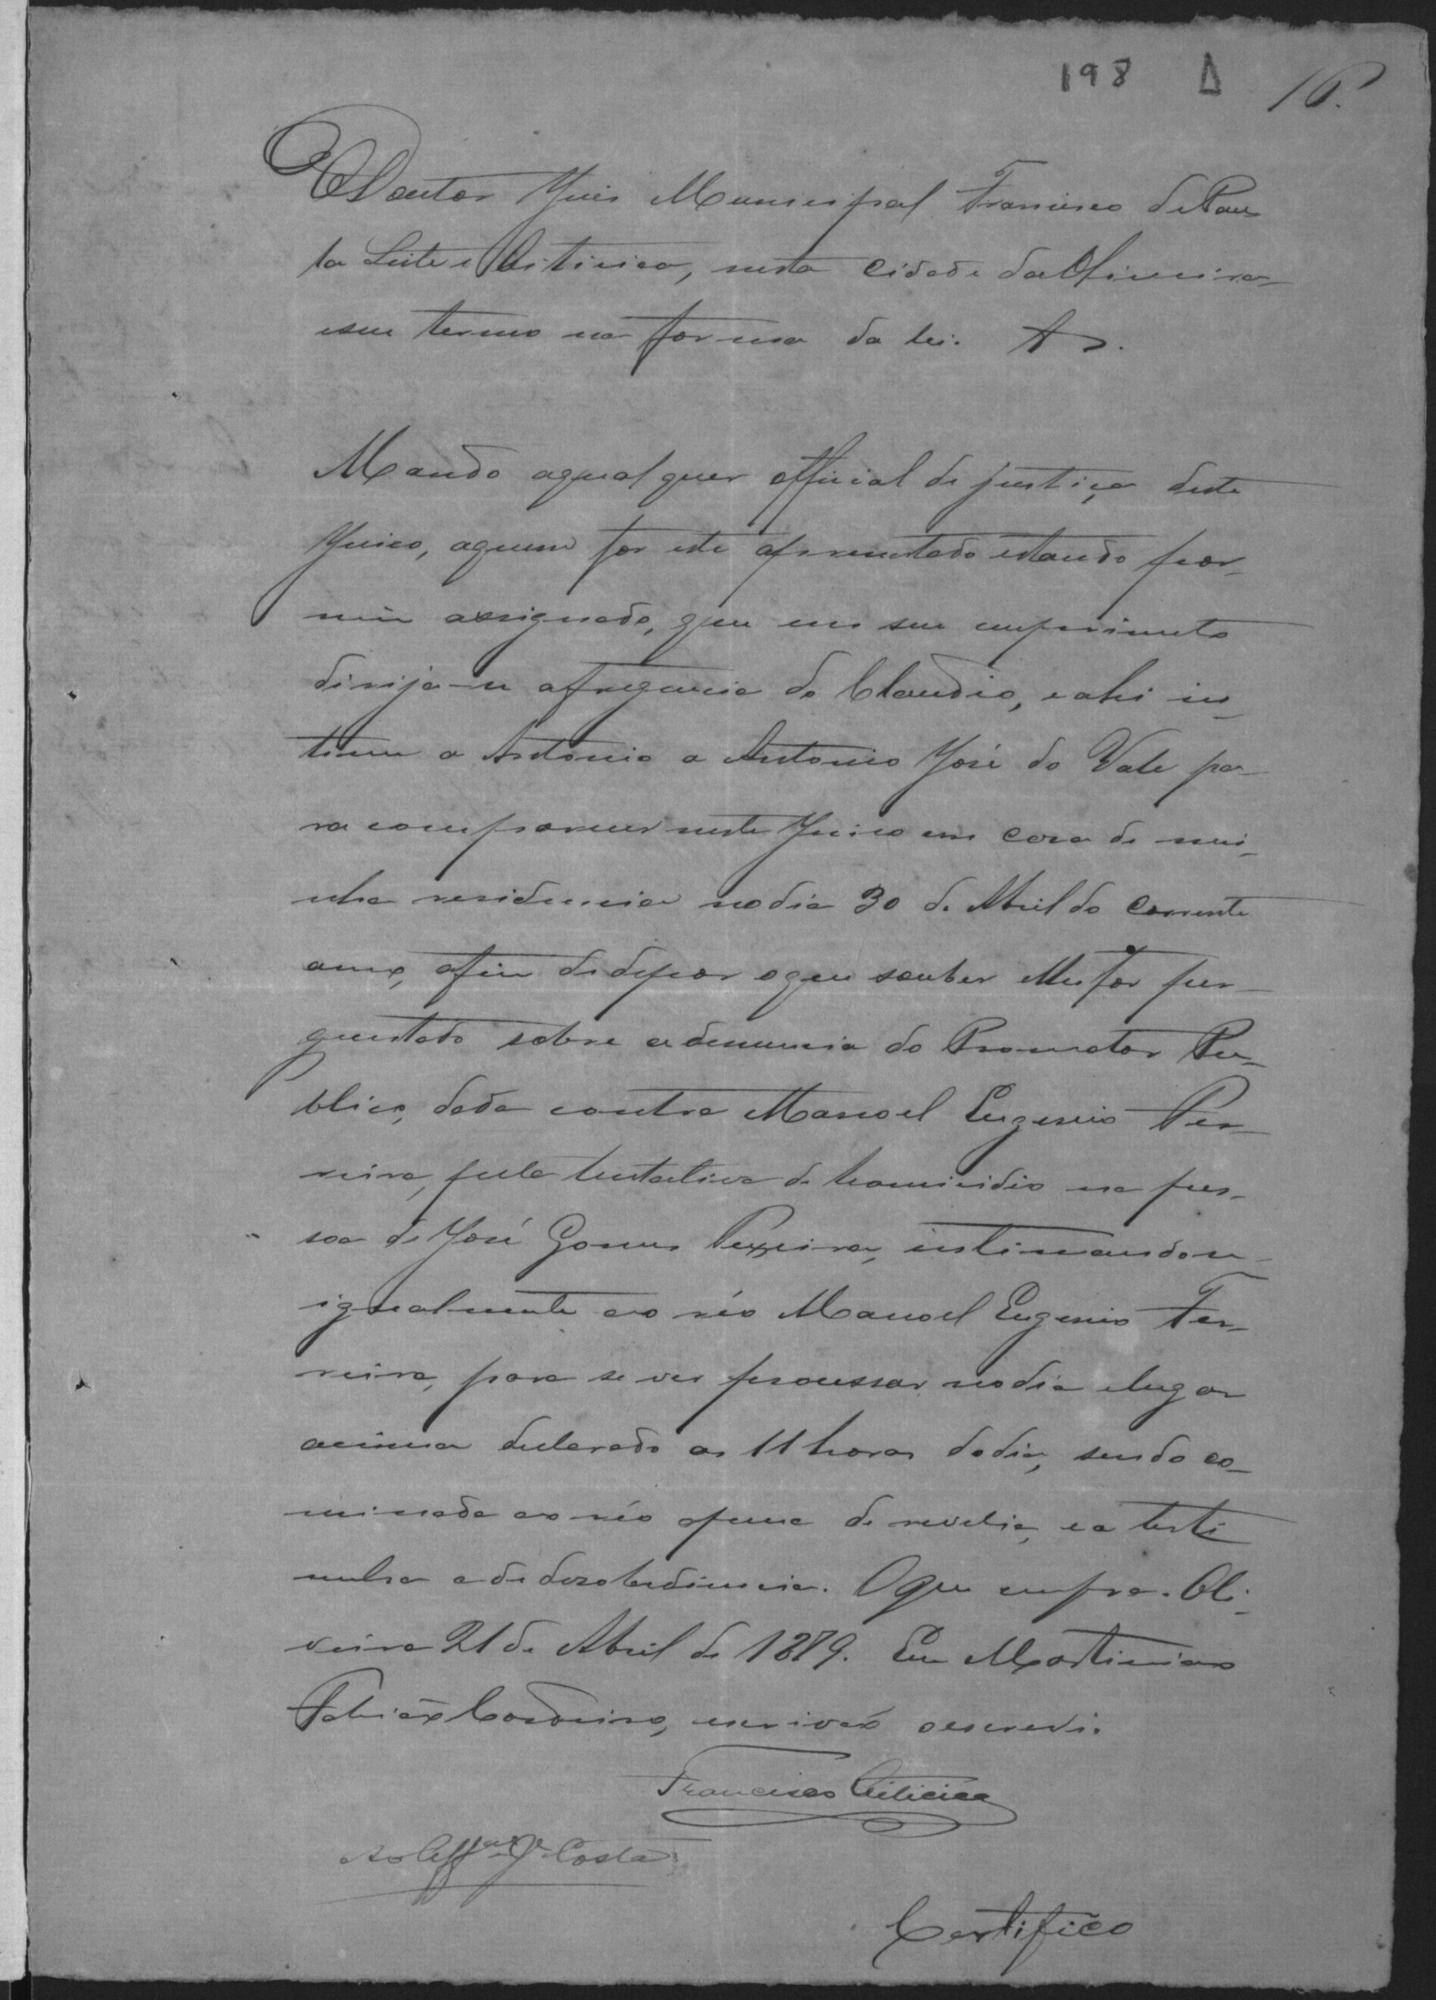 198 16.
O Doutor Juis Municipal Francisco de Pau
la Leite e Oiticica, nesta Cidade da Oliveira
e seu termo na forma da lei. &
Mando a qual quer official de justiça deste
Juiso, a quem for este apresentado estando por
mim assignado, que em seu cumprimento
dirija-se a freguesia do Claudio, e ahi in-
time a Antonio a Antonio José do Vale pa-
ra comparecer neste Juiso em casa de mi-
nha residencia no dia 30 de Abril do corrente
anno, afim de depor o que souber e lhe for per-
guntado sobre a denuncia do Promotor Pu-
blico, dada contra Manoel Eugenio Fer-
reira, pela tentativa de homicidio na pes-
soa de José Gomes Teixeira, intimando-se
igualmente ao réo Manoel Eugenio Fer-
reira, para se ver processar no dia e lugar
acima declarado as 11 horas do dia, sendo co-
minada ao réo a pena de revelia, e a teste
munha a de desobediencia. O que cumpra. Oli-
veira 21 de Abril de 1879. Eu Martiniano
Cordeiro, escrivão o escrevi.
Francisco Oiticica
Costa
Certifico